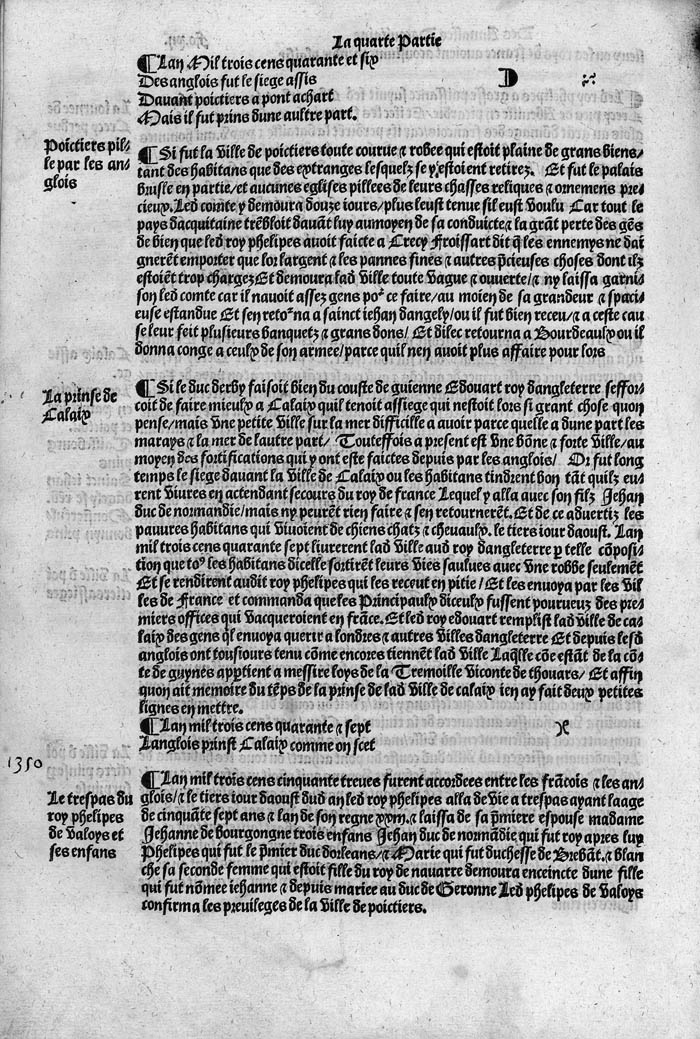 La quarte Partie
¶ Lan Mil trois cens quarante et six
Des anglois fut le siege assis
Davant poictiers a pont achart
Mais il fut prins dune aultre part.
D
Poictiers pil-
le par les an-
glois
¶ Si fut la ville de poictiers toute courue ⁊ robee qui estoit plaine de grans biens/
tant des habitans que des extranges lesquelz se y estoient retirez. Et fut le palais
brusle en partie/et aucunes eglises pillees de leurs chasses reliques ⁊ ornemens pre-
cieux. Led comte y demoura douze iours/plus leust tenue sil eust voulu Car tout le
pays dacquitaine trēbloit davāt luy aumoyen de sa conduicte⁊ la grāt perte des gēs
de bien que led roy phelipes avoit faicte a Crecy Froissart dit q̄ les ennemys ne dai
gnerēt emporter que lor largent ⁊ les pannes fines ⁊ autres p̄cieuses choses dont ilz
estoiēt trop chargez Et demoura lad ville toute vague ⁊ ouuerte/⁊ ny laissa garni-
son led comte car il navoit assez gens poᵘʳ ce faire/au moien de sa grandeur ⁊ spaci-
euse estandue Et sen retoᵘʳna a sainct iehan dangely/ou il fut bien receu/⁊ a ceste cau
se leur feit plusieurs banquetz ⁊ grans dons/ Et dilec retourna a Bourdeaulx ou il
donna conge a ceulx de son armee/parce quil nen auoit plus affaire pour lors
La prinse de
Calaix
¶ Si le duc derby faisoit bien du couste de guienne Edouart roy dangleterre seffor-
coit de faire mieulx a Calaix quil tenoit assiege qui nestoit lors si grant chose quon
pense/mais une petite ville sur la mer difficille a avoir parce quelle a dune part les
marays ⁊ la mer de lautre part/ Touteffois a present est une bōne ⁊ forte ville/au
moyen des fortifications qui y ont este faictes depuis par les anglois/ Or fut long
temps le siege davant la ville de Calaix ou les habitans tindrent bon tāt quilz eu-
rent vivres en actendant secours du roy de france Lequel y alla avec son filz Jehan
duc de normandie/mais ny peurēt rien faire ⁊ sen retournerēt. Et de ce advertiz les
pauvres habitans qui vivoient de chiens chatz ⁊ chevaulx. le tiers iour daoust. Lan
mil trois cens quarante sept livrerent lad ville aud roy dangleterre p telle cōposi-
tion que toᵘˢ les habitans dicelle sortirēt leurs vies saulves avec une robbe seulemēt
Et se rendirent audit roy phelipes qui les receut en pitie/ Et les envoya par les vil
les de France et commanda que les Principaulx diceulx fussent pourveuz des pre-
miers offices qui vacqueroient en frāce. Et led roy edouart remplist lad ville de ca-
laix des gens ql envoya querir a londres ⁊ autres villes dangleterre Et depuis lesd
anglois ont tousiours tenu cōme encores tiennēt lad ville Laq̄lle cōe estāt de la cō-
te de guynes app̄tient a messire loys de la Tremoille viconte de thouars/ Et affin
quon ait memoire du tēps de la prinse de lad ville de calaix ien ay fait deux petites
lignes en mettre.
¶ Lan mil trois cens quarante ⁊ sept
Langlois prinst Calaix comme on scet
1350
Le trespas du
roy phelipes
de valoys et
ses enfans
¶ Lan mil trois cens cinquante treues furent accordees entre les frācois ⁊ les an-
glois/⁊ le tiers iour daoust dud an led roy phelipes alla de vie a trespas ayant laage
de cinquāte sept ans ⁊ lan de son regne xxiii. ⁊ laissa de sa p̄miere espouse madame
Jehanne de bourgongne trois enfans Jehan duc de normādie qui fut roy apres luy
Phelipes qui fut le p̄mier duc dorleans/⁊ Marie qui fut duchesse de Brebāt. ⁊ blan
che sa seconde femme qui estoit fille du roy de navarre demoura enceincte dune fille
qui fut nōmee iehanne ⁊ depuis mariee au duc de Geronne Led phelipes de valoys
confirma les previleges de la ville de poictiers.